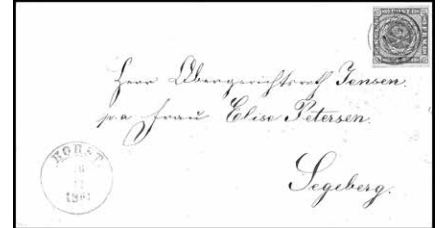 Herr Obergerichtsrath Jensen.
pra Frau Elise Petersen.
Segeberg.
HORST